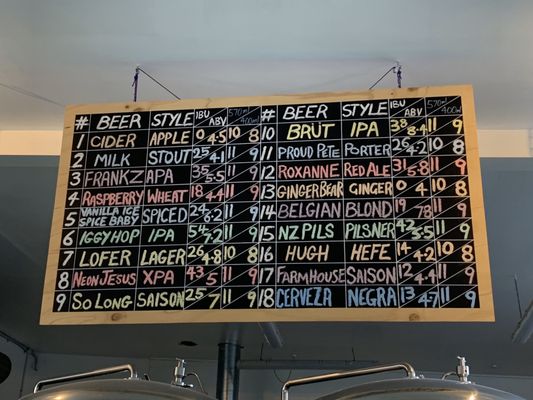 # BEER STYLE IBU ABV 570ml 400ml
1 CIDER APPLE 0 4.5 10 8
2 MILK STOUT 25 4.1 11 9
3 FRANKZ APA 35 5.5 11 9
4 RASPBERRY WHEAT 18 4.4 11 9
5 VANILLA ICE SPICE BABY SPICED 24 6.2 11 9
6 IGGYHOP IPA 54 7.2 11 9
7 LOFER LAGER 26 4.8 10 8
8 NEON JESUS XPA 43 5 11 9
9 SO LONG SAISON 25 7 11 9
# BEER STYLE IBU ABV 570ml 400ml
10 BRUT IPA 39 8.4 11 9
11 PROUD PETE PORTER 26 4.2 10 8
12 ROXANNE RED ALE 31 5.8 11 9
13 GINGERBEAR GINGER 0 4 10 8
14 BELGIAN BLOND 19 7.8 11 9
15 NZ PILS PILSNER 42 5.5 11 9
16 HUGH HEFE 14 4.2 10 8
17 FARMHOUSE SAISON 12 4.4 11 9
18 CERVEZA NEGRA 13 4.7 11 9